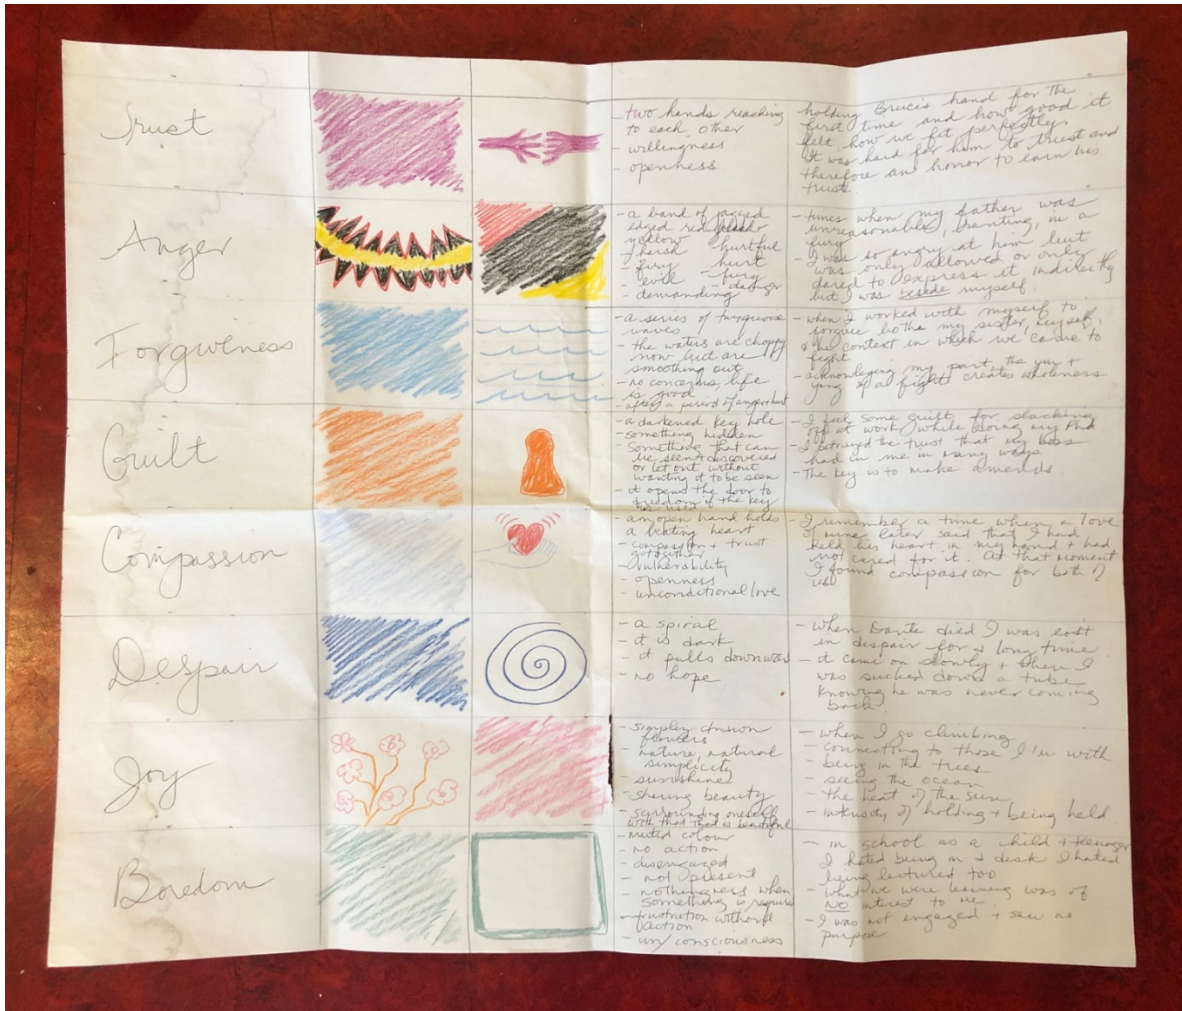 Trust
- two hands reaching
to each other
- willingness
- openness.
holding Bruce's hand for the
first time and how good it
felt, how we fit perfectly.
It was hard for him to trust and
therefore an honor to earn his
trust.
Anger
- a band of jagged
edged red
yellow
- harsh - hurtful
- fury - hurt
- evil - fury
- demanding - danger
- times when my father was
unreasonable, in a
fury
- I was so angry at him but
was only allowed or only
dared to express it indirectly
but I was beside myself.
Forgiveness
- a series of turquoise
waves
- the waters are choppy
now but are
smoothing out
- no concerns, life
is good
- after a period of anger hurt
- when I worked with myself to
forgive bothe my sister, myself,
& the context in which we came to
fight
- acknowledging my part, the yin +
yang of a fight creates wholeness
Guilt
- a darkened key hole
- something hidden
- something that can
be seen + discovered
or let out without
wanting it to be seen
- it opens the door to
freedom if the key
is used
- I feel some guilt for slacking
off at work while doing my Phd
- I betrayed the trust that my boss
had in me in many ways
- The key is to make amends.
Compassion
- an open hand holds
a beating heart
- compassion + trust
go together
- vulnerability
- openness
- unconditional love
- I remember a time when a love
of mine later said that I had
held his heart in my hand + had
not cared for it. At that moment
I found compassion for both of
us
Despair
- a spiral
- it is dark
- it pulls downward
- no hope
- when Dante died I was lost
in despair for a long time
- it came on slowly + then I
was sucked down a tube
knowing he was never coming
back.
Joy
- simpley drawn
flowers
- nature, natural
simplicity
- sunshine
- sharing beauty
- surrounding oneself
with that that is beautiful
- when I go climbing
- connecting to those I'm with
- being in the trees
- seeing the ocean
- the heat of the sun
- intensity of holding + being held
Boredom
- muted colour
- no action
- disengaged
- not present
- nothingness when
something is required
- frustration without
action
- un/consciousness
- in school as a child + teenager
I hated being in a desk I hated
being lectured too
- what we were learning was of
no interest to me.
- I was not engaged + saw no
purpose